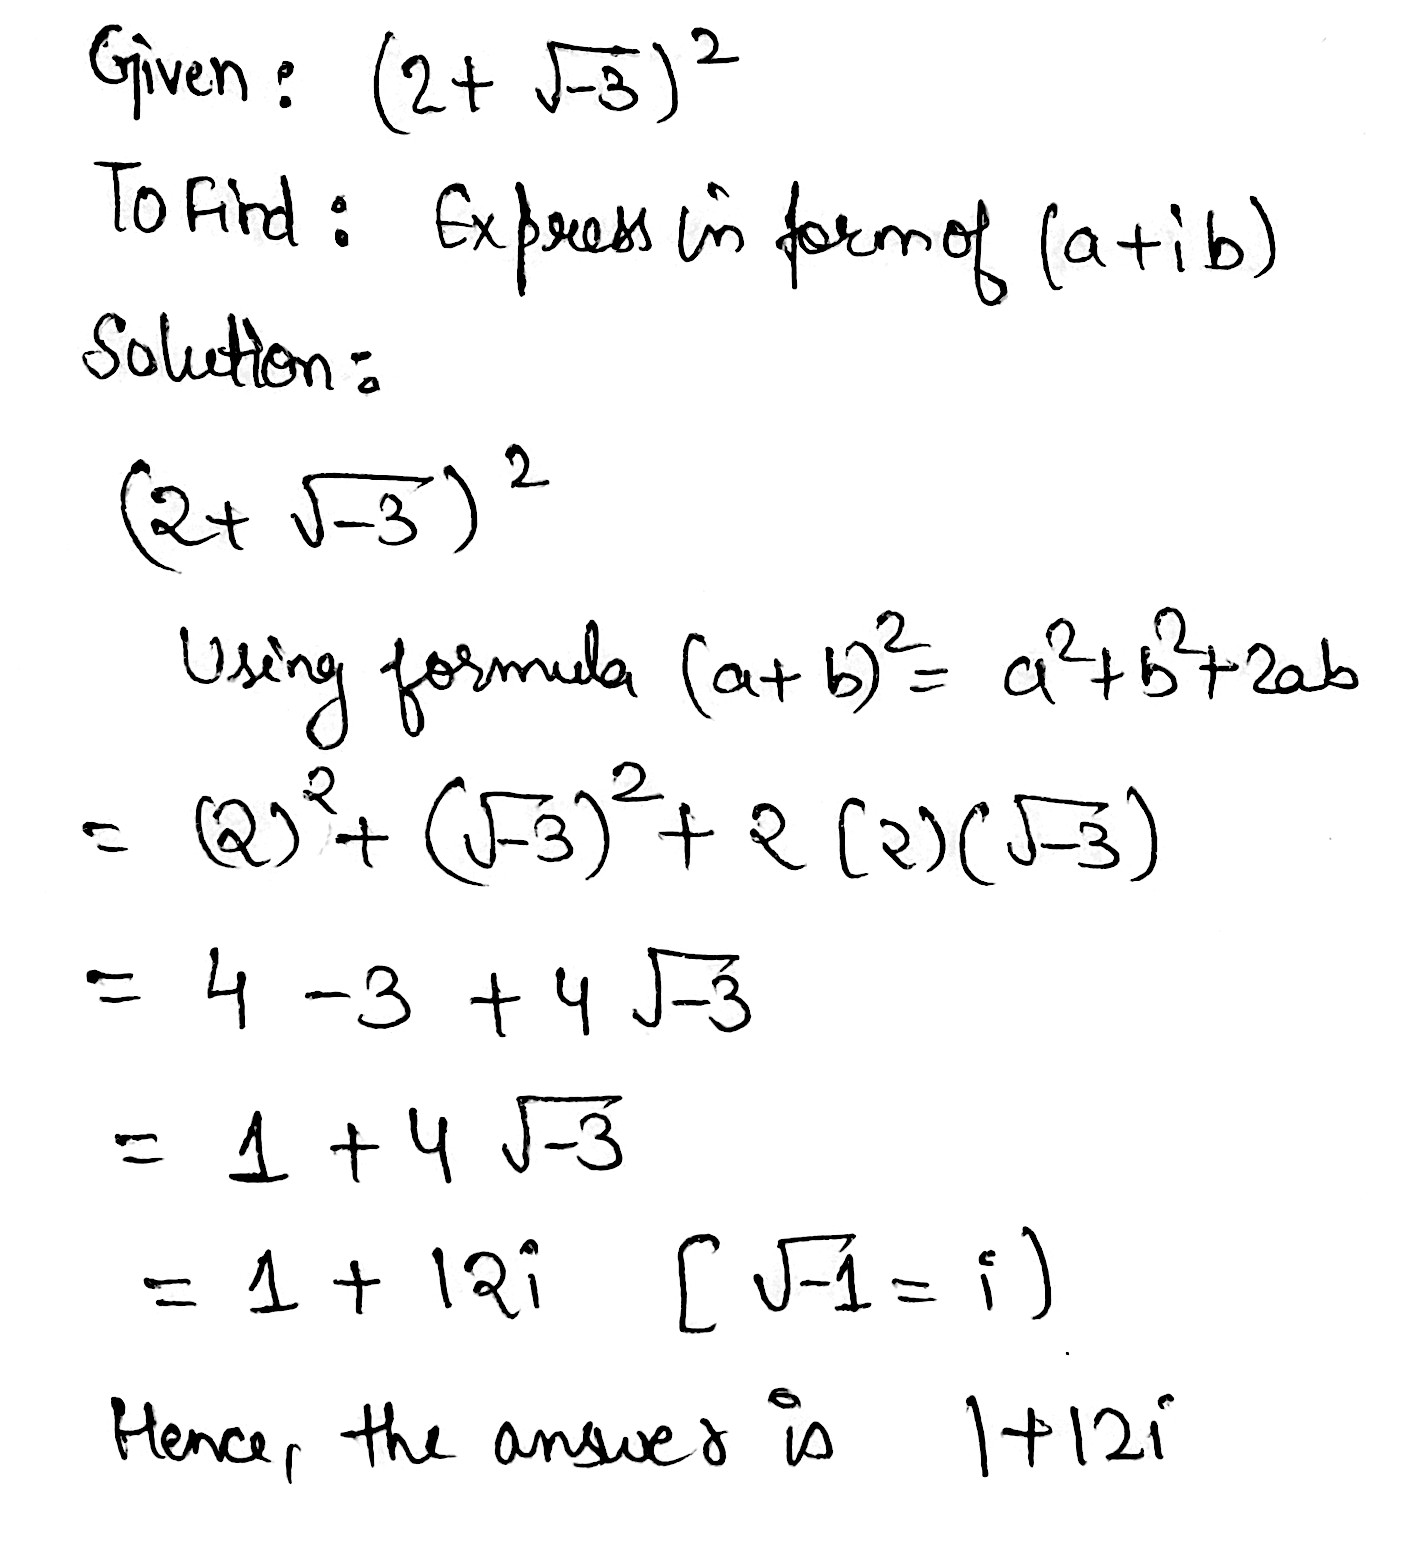 Given : (2+ √-3)²
To Find : Express in form of (a+ib)
Solution :
(2+ √-3)²
Using formula (a+b)² = a²+b²+2ab
= (2)²+ (√-3)²+ 2 (2)(√-3)
= 4 -3 +4 √-3
= 1 +4 √-3
= 1 + 12i [√-1 = i)
Hence, the answer is 1+12i